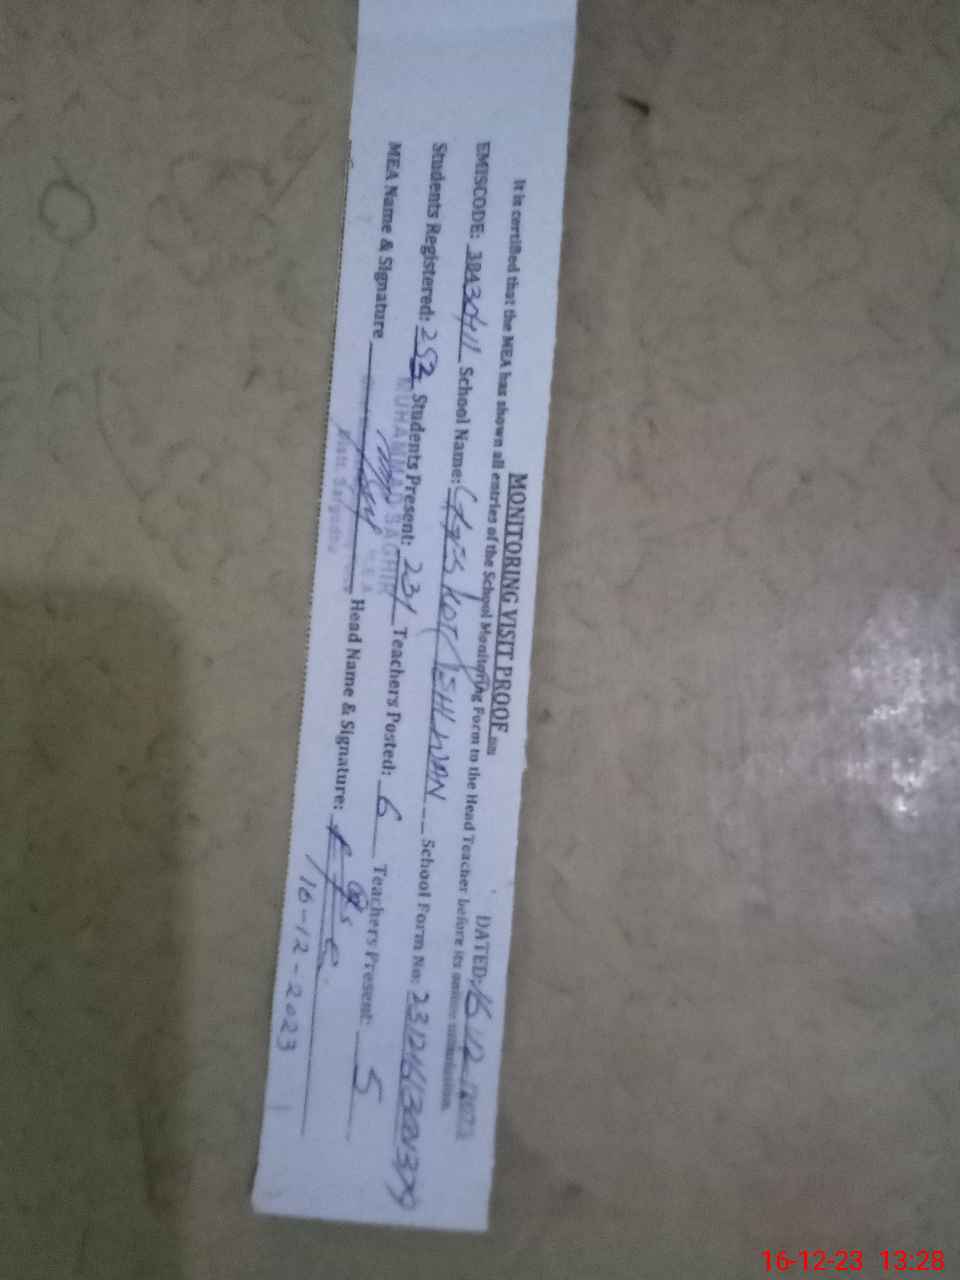 MONITORING VISIT PROOF
DATED: 16-12-2023
It is certified that the MEA has shown all entries of the School Monitoring Form to the Head Teacher before its online submission.
EMISCODE: 38430411 School Name: KOT SHLWAN School Form No:
Students Registered: 252 Students Present: 231 Teachers Posted: 6 Teachers Present: 5
MEA Name & Signature Head Name & Signature:
MUHAMMAD SAGHIR
MEA
Distt. Sargodha
16-12-2023
16-12-23 13:28